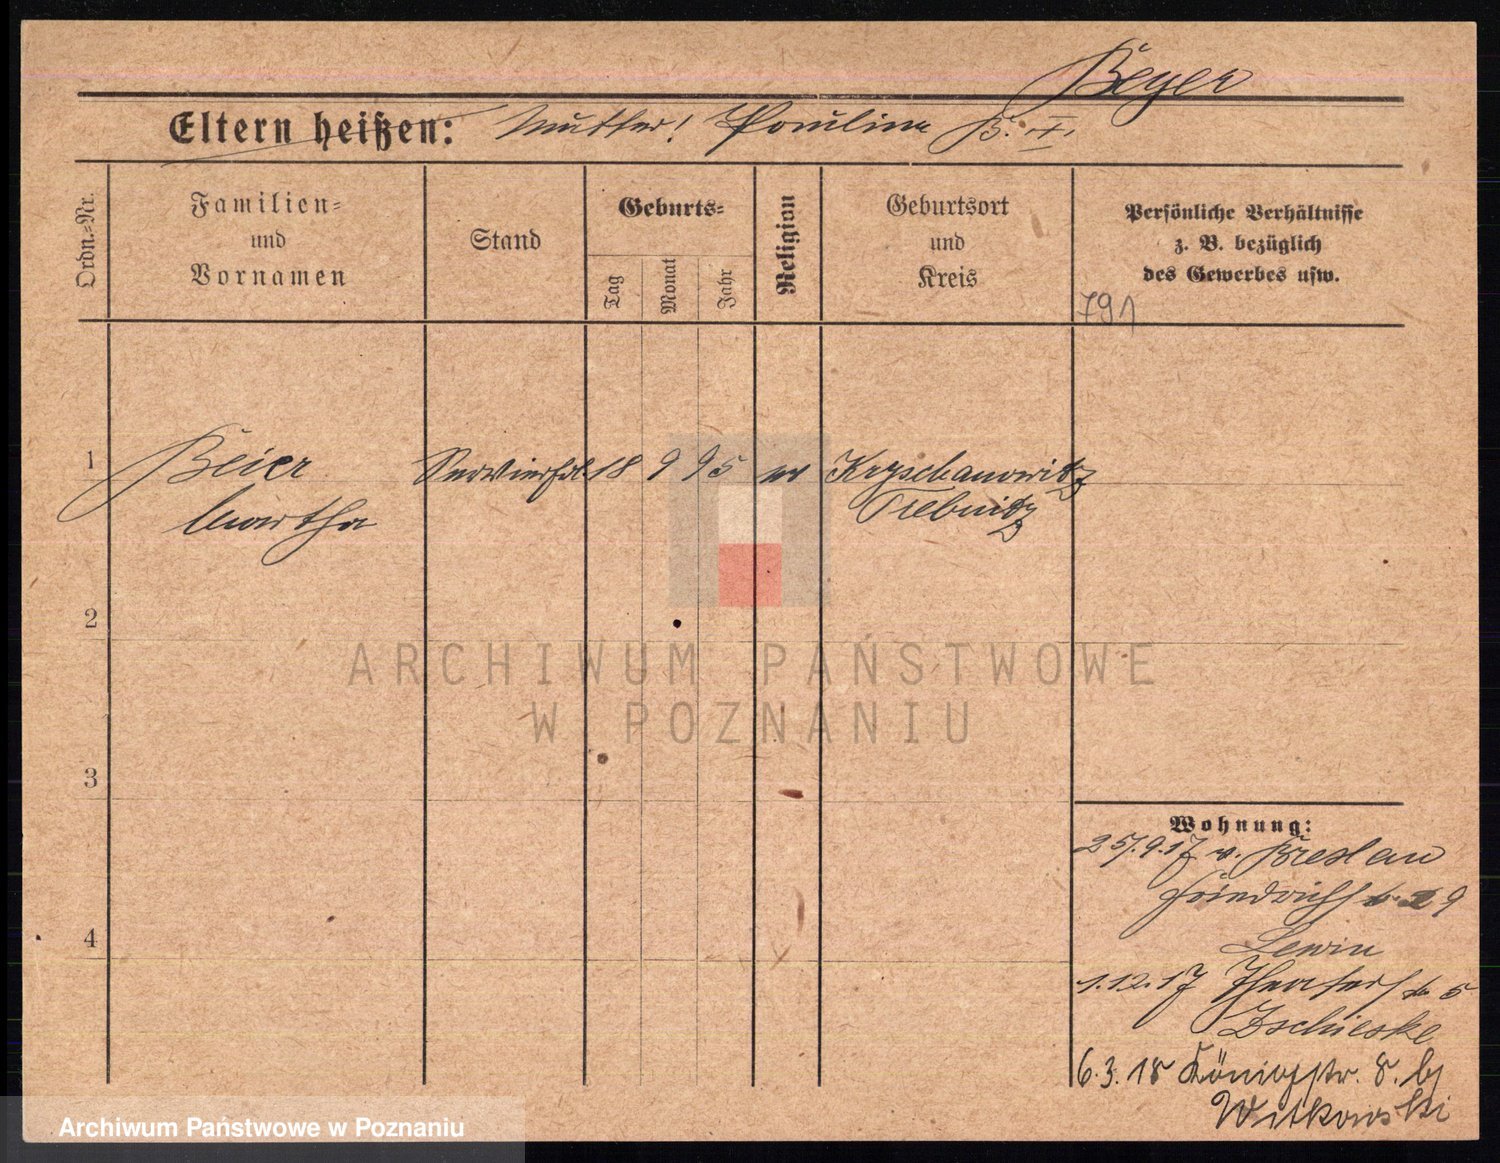 Beyer
Eltern heißen: Mutter! Paulina B. +.
Ordn.-Nr.
Familien-
und
Vornamen
Stand
Geburts-
Tag
Monat
Jahr
Religion
Geburtsort
und
Kreis
Persönliche Verhältnisse
z. B. bezüglich
des Gewerbes usw.
791
1 Beier 18 9 95 ev Kryschanowitz
Martha Trebnitz
2
3
4
Wohnung:
25.9.17 v. Breslau
Friedrichstr. 29
Lewin
1.12.17 Theaterstr 5
Zschieske
6.3.18 Königstr. 8. bj
Witkowski
ARCHIWUM PAŃSTWOWE
W POZNANIU
Archiwum Państwowe w Poznaniu